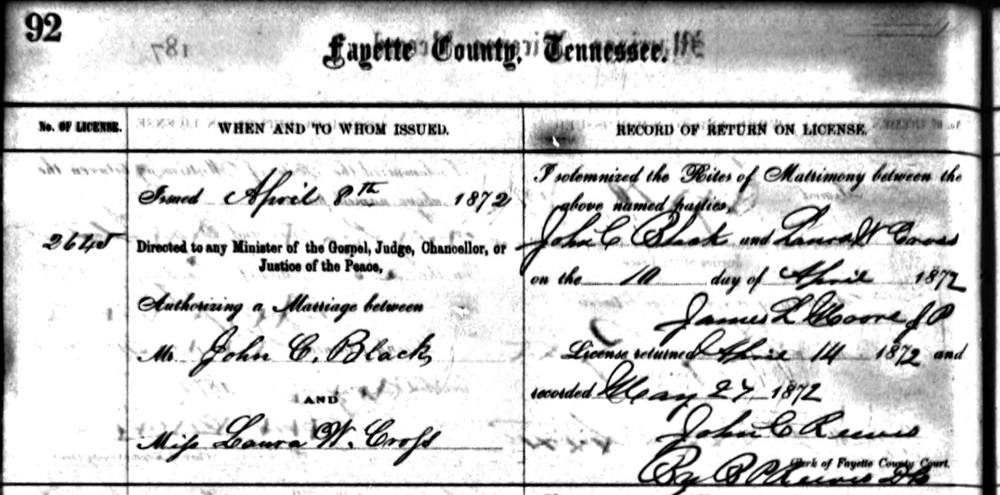 92
Fayette County, Tennessee.
No. OF LICENSE.
WHEN AND TO WHOM ISSUED.
RECORD OF RETURN ON LICENSE.
2645
Issued April 8th 1872
Directed to any Minister of the Gospel, Judge, Chancellor, or
Justice of the Peace,
Authorizing a Marriage between
Mr. John C. Black
AND
Miss Laura W. Cross
I solemnized the Rites of Matrimony between the
above named parties,
John C. Black and Laura W Cross
on the 10 day of April 1872
James L Moore J P
License returned April 14 1872 and
recorded May 27 1872
John C Reeves
Clerk of Fayette County Court.
By Reeves